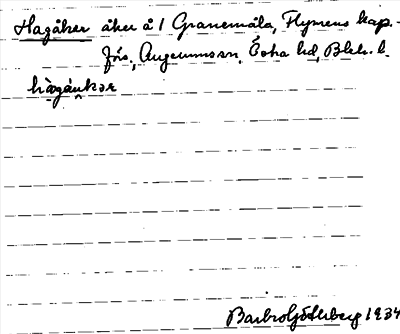 Hagåker åker å 1 Granemåla, Flymens kap.-
förs., Augerums sn, Östra hd, Blek. l.
hàgáukər
Barbro Söderberg 1934